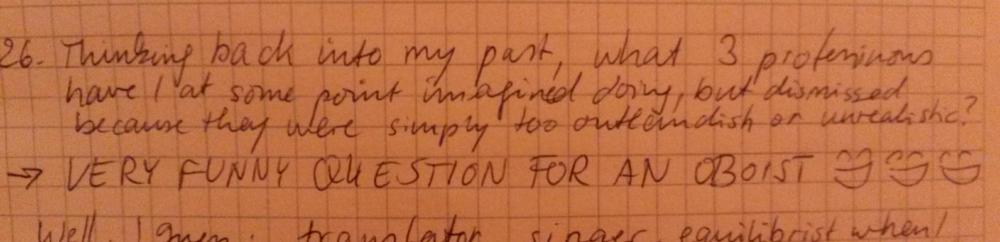 26. Thinking back into my past, what 3 professions
have I at some point imagined doing, but dismissed
because they were simply too outlandish or unrealistic?
→ VERY FUNNY QUESTION FOR AN OBOIST 😄😄😄
Well, I guess: translator, singer, equilibrist when I